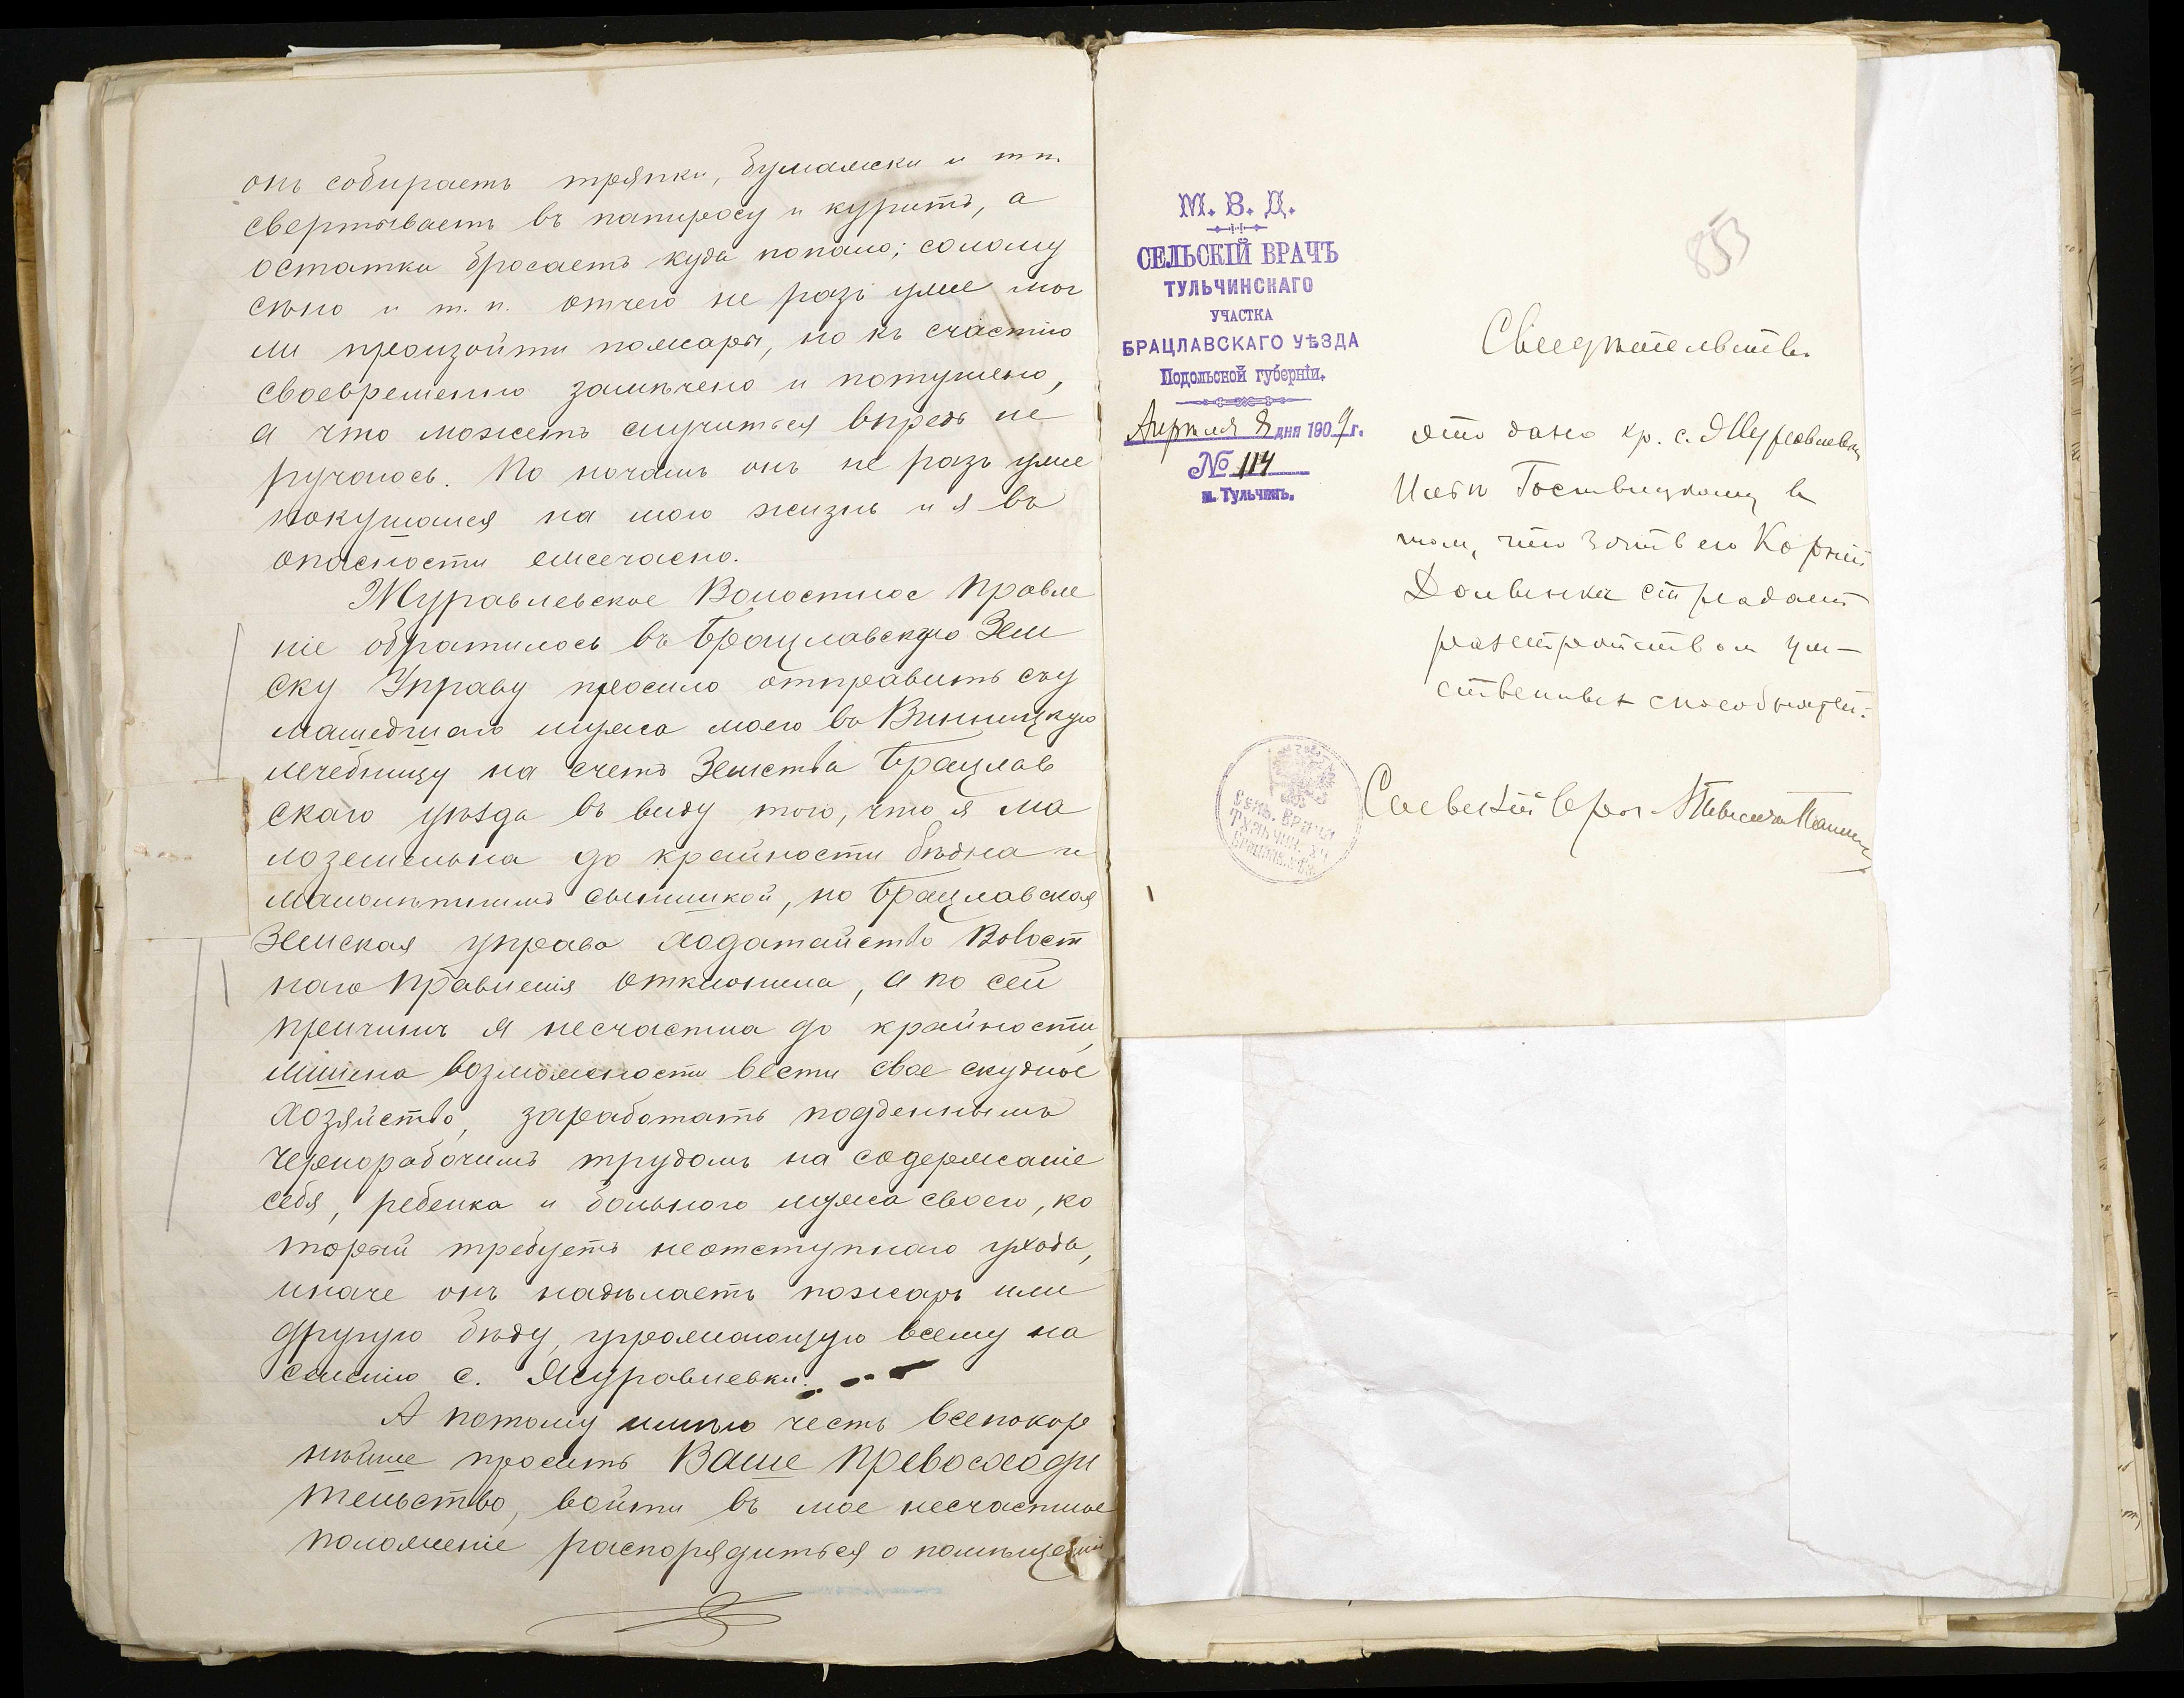 онъ собираетъ тряпки, бумажки и т п.
свертываетъ въ папиросу и куритъ, а
остатки бросаетъ куда попало; солому
сѣно и т. п. отчего не разъ уже мог
ли произойти пожары, но къ счастію
своевременно замѣчено и потушено,
а что можетъ случиться впредь не
ручаюсь. По ночамъ онъ не разъ уже
покушался на мою жизнь и я въ
опасности ежечасно.
Журавлевское Волостное Правле
ніе обратилось въ Брацлавскую Зем
ску Управу просило отправить су
машедшаго мужа моего въ Винницкую
лечебницу на счетъ Земства Брацлав
скаго уѣзда въ виду того, что я ма
лоземельна до крайности бѣдна и
малолѣтнимъ сынишкой, но Брацлавская
Земская управа ходатайство Волост
наго Правленія отклонила, а по сей
причинѣ я несчастна до крайности,
лишена возможности вести свое скудное
хозяйство, заработать подденнымъ
чернорабочимъ трудомъ на содержаніе
себя, ребенка и больного мужа своего, ко
торый требуетъ неотступнаго ухода,
иначе онъ надѣлаетъ пожаръ или
другую бѣду, угрожающую всему на
селенію с. Журавлевки.
А потому имѣю честь всепокор
нѣйше просить Ваше Превосходи
тельство, войти въ мое несчастное
положеніе распорядиться о помѣщеніи
853
М. В. Д.
СЕЛЬСКІЙ ВРАЧЪ
ТУЛЬЧИНСКАГО
УЧАСТКА
БРАЦЛАВСКАГО УѢЗДА
Подольской губерніи.
Апрѣля 8 дня 1909 г.
№ 114
м. Тульчинъ.
Свидѣтельство
это дано кр. с. Журавлевки
Гоствицкому в
том, что зять его Корній
Долвинка страдает
разстройством ум-
ственных способностей.
Сельскій врач
СЕЛЬ. ВРАЧА
ТУЛЬЧИН. УЧ
БРАЦЛАВ. УѢЗ.